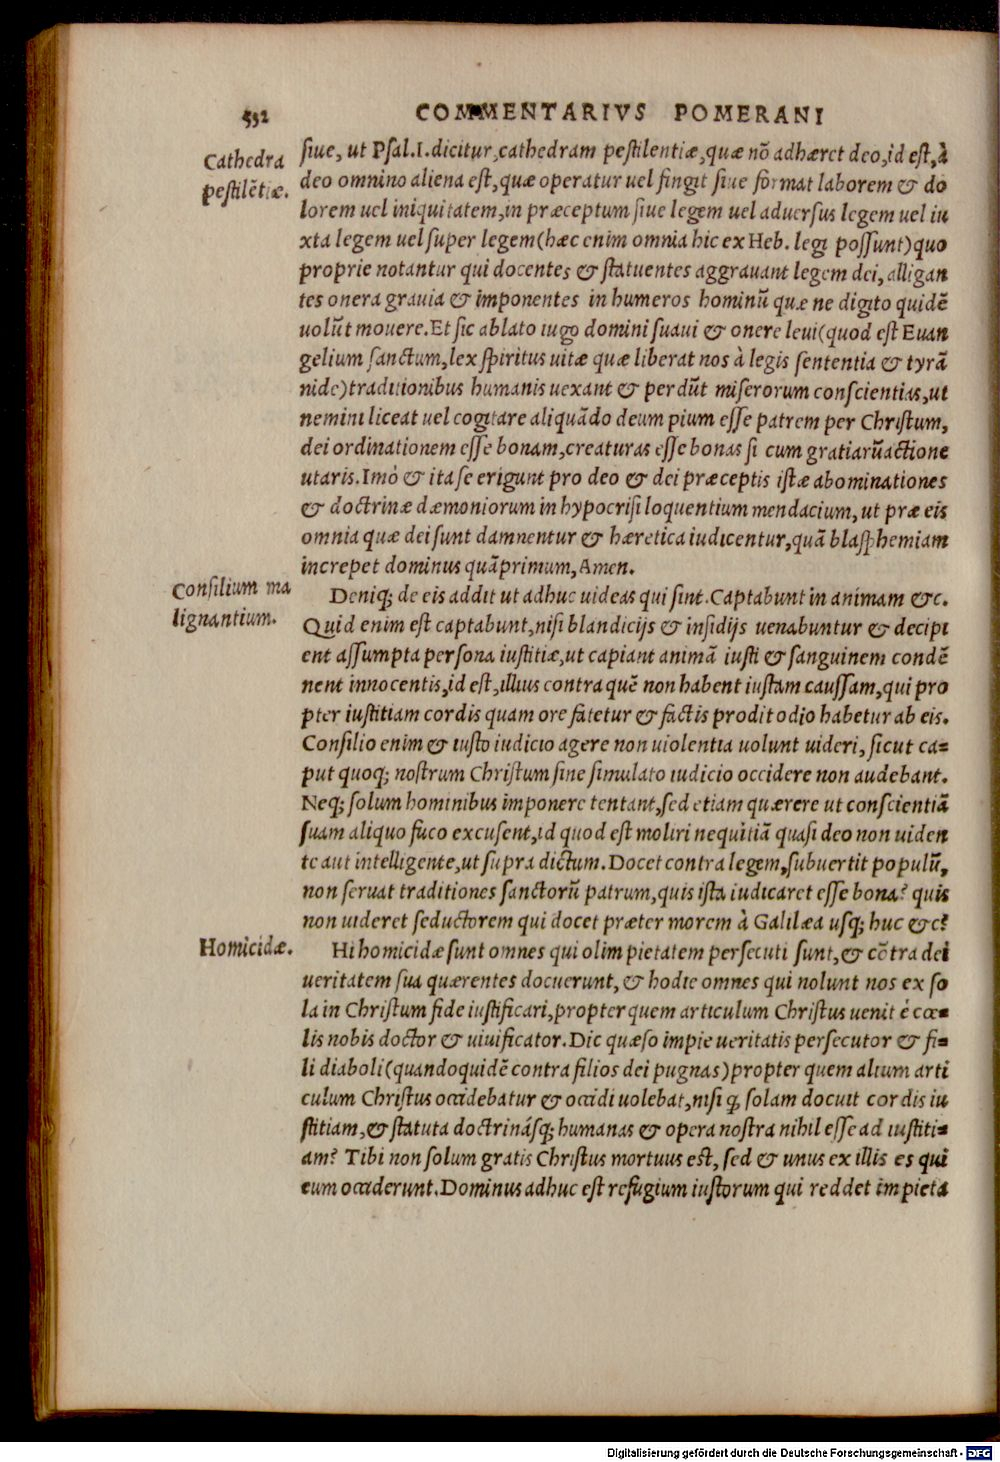 532 COMMENTARIVS POMERANI
Cathedra
pestilẽtiæ.
siue, ut Psal.I.dicitur,cathedram pestilentiæ,quæ nõ adhæret deo,id est,à
deo omnino aliena est,quæ operatur uel fingit siue format laborem & do
lorem uel iniquitatem,in præceptum siue legem uel aduersus legem uel iu
xta legem uel super legem(hæc enim omnia hic ex Heb. legi possunt)quo
proprie notantur qui docentes & statuentes aggrauant legem dei, alligan
tes onera grauia & imponentes in humeros hominũ quæ ne digito quidẽ
uolũt mouere.Et sic ablato iugo domini suaui & onere leui(quod est Euan
gelium sanctum,lex spiritus uitæ quæ liberat nos à legis sententia & tyrã
nide)traditionibus humanis uexant & perdũt miserorum conscientias,ut
nemini liceat uel cogitare aliquãdo deum pium esse patrem per Christum,
dei ordinationem esse bonam,creaturas esse bonas si cum gratiarũactione
utaris.Imò & ita se erigunt pro deo & dei præceptis istæ abominationes
& doctrinæ dæmoniorum in hypocrisi loquentium mendacium, ut præ eis
omnia quæ dei sunt damnentur & hæretica iudicentur,quã blasphemiam
increpet dominus quãprimum, Amen.
Consilium ma
lignantium.
Deniq; de eis addit ut adhuc uideas qui sint.Captabunt in animam &c.
Quid enim est captabunt,nisi blandicijs & insidijs uenabuntur & decipi
ent assumpta persona iustitiæ,ut capiant animã iusti & sanguinem condẽ
nent innocentis,id est,illius contra quẽ non habent iustam caussam,qui pro
pter iustitiam cordis quam ore fatetur & factis prodit odio habetur ab eis.
Consilio enim & iusto iudicio agere non uiolentia uolunt uideri, sicut ca=
put quoq; nostrum Christum sine simulato iudicio occidere non audebant.
Neq; solum hominibus imponere tentant,sed etiam quærere ut conscientiã
suam aliquo fuco excusent,id quod est moliri nequitiã quasi deo non uiden
te aut intelligente,ut supra dictum. Docet contra legem,subuertit populũ,
non seruat traditiones sanctorũ patrum,quis ista iudicaret esse bona? quis
non uideret seductorem qui docet præter morem à Galilæa usq; huc &c?
Homicidæ.
Hi homicidæ sunt omnes qui olim pietatem persecuti sunt,& cõtra dei
ueritatem sua quærentes docuerunt, & hodie omnes qui nolunt nos ex so
la in Christum fide iustificari,propter quem articulum Christus uenit è cœ=
lis nobis doctor & uiuificator. Dic quæso impie ueritatis persecutor & fi=
li diaboli(quandoquidẽ contra filios dei pugnas)propter quem alium arti
culum Christus occidebatur & occidi uolebat,nisi q̃ solam docuit cordis iu
stitiam,& statuta doctrinásq; humanas & opera nostra nihil esse ad iustiti=
am? Tibi non solum gratis Christus mortuus est, sed & unus ex illis es qui
eum occiderunt.Dominus adhuc est refugium iustorum qui reddet impieta
Digitalisierung gefördert durch die Deutsche Forschungsgemeinschaft - DFG